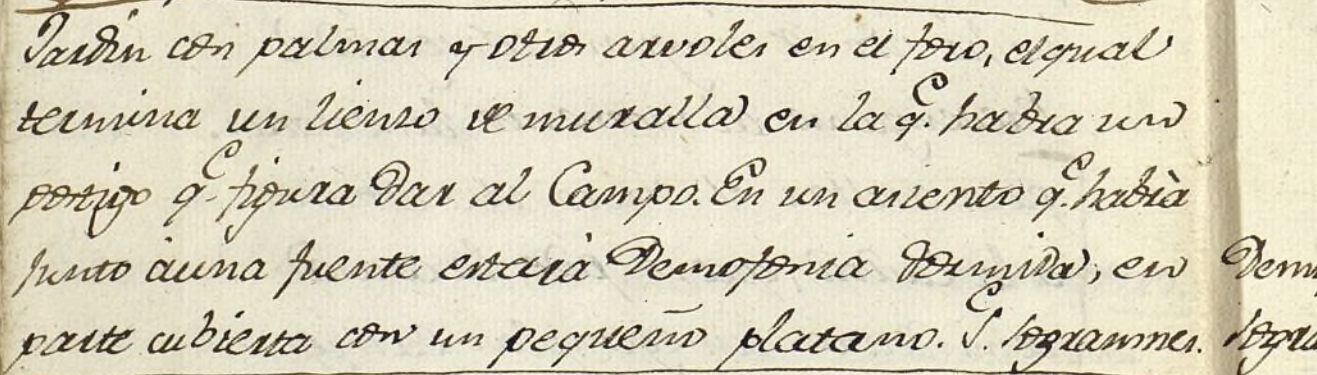 Jardin con palmas y otros arvoles en el foro, el qual
termina un lienzo de muralla en la q.e habra un
postigo q.e figura dar al Campo. En un asiento q.e habrà
junto à una fuente estarà Demofonia dormida, en
parte cubierta con un pequeño platano. S.